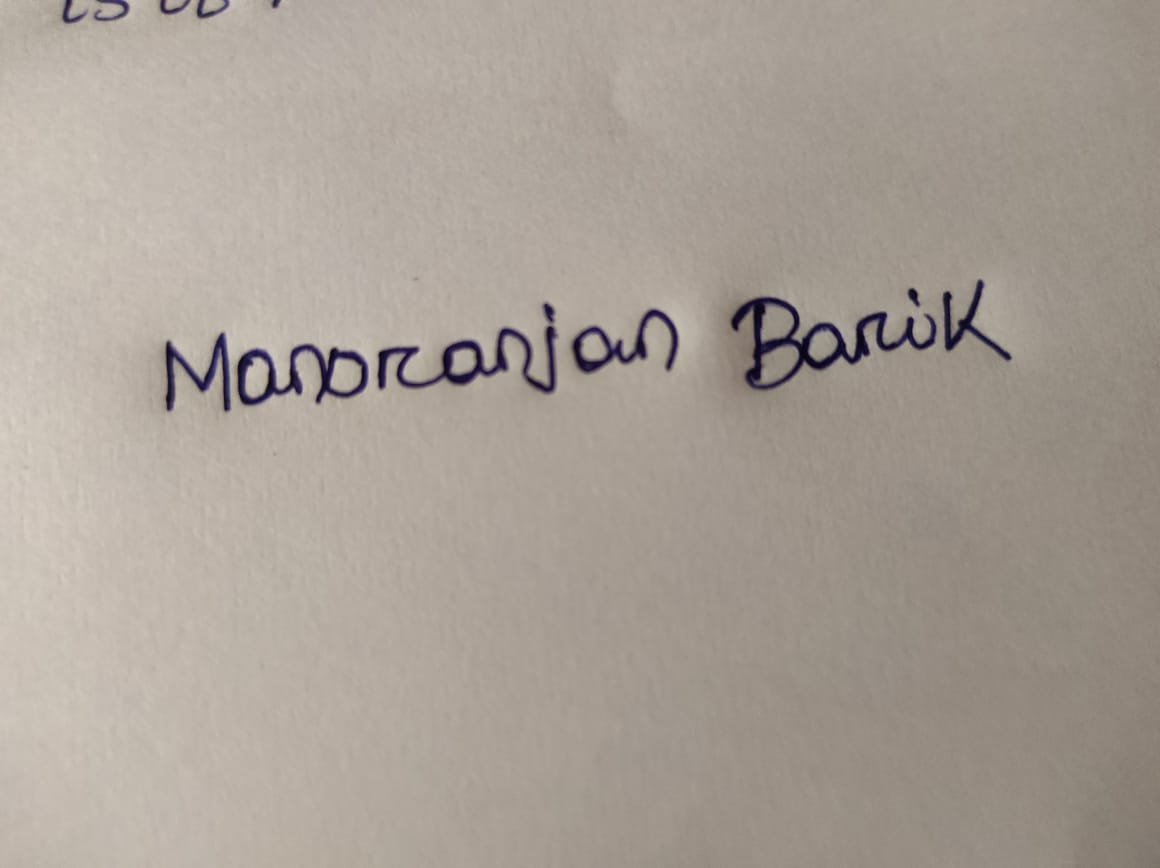 Manoranjan Barik